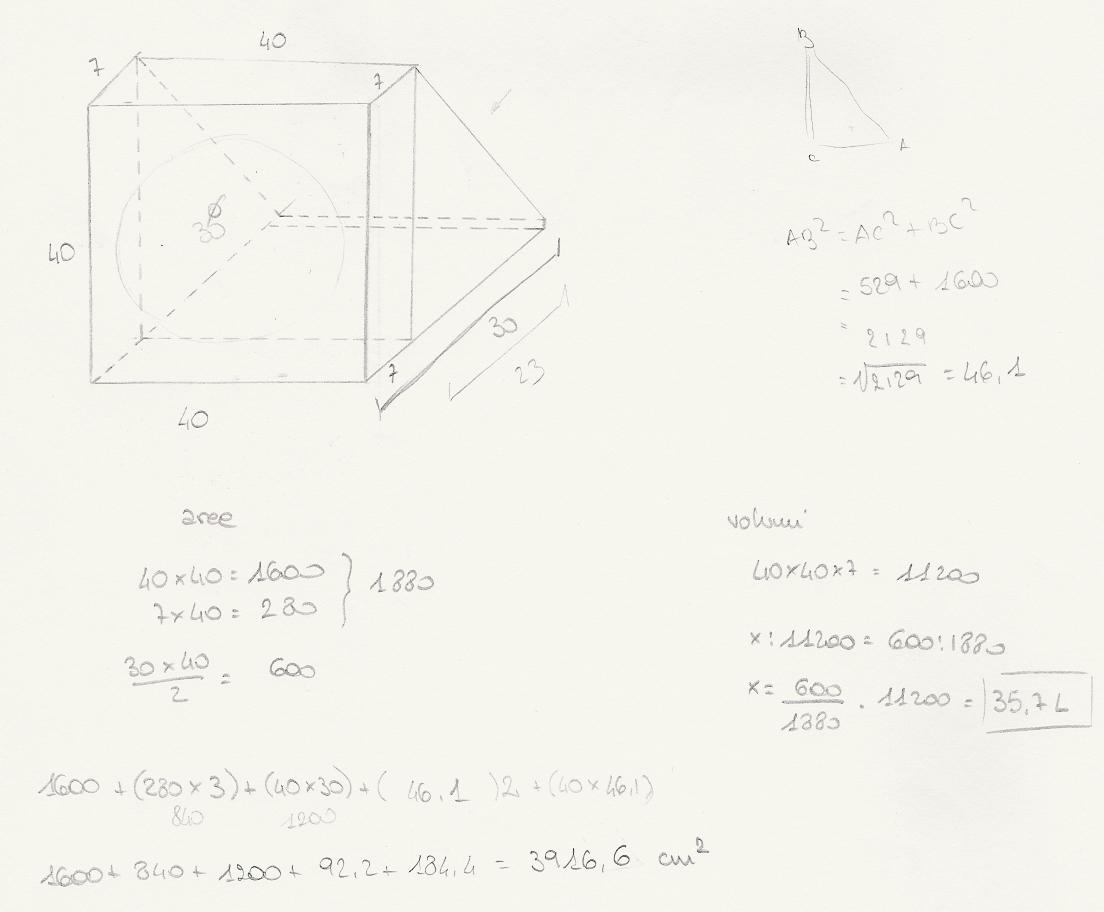 40
7
7
40
Ø
35
30
23
7
40
B
C
A
AB² = AC² + BC²
= 529 + 1600
= 2129
= √2129 = 46,1
aree
40×40 = 1600 } 1880
7×40 = 280
30×40
2
= 600
volumi
40×40×7 = 11200
x : 11200 = 600 : 1880
x = 600/1880 . 11200 = 35,7 L
1600 + (280×3) + (40×30) + ( 46,1 )2 + (40×46,1)
840 1200
1600 + 840 + 1200 + 92,2 + 184,4 = 3916,6 cm²